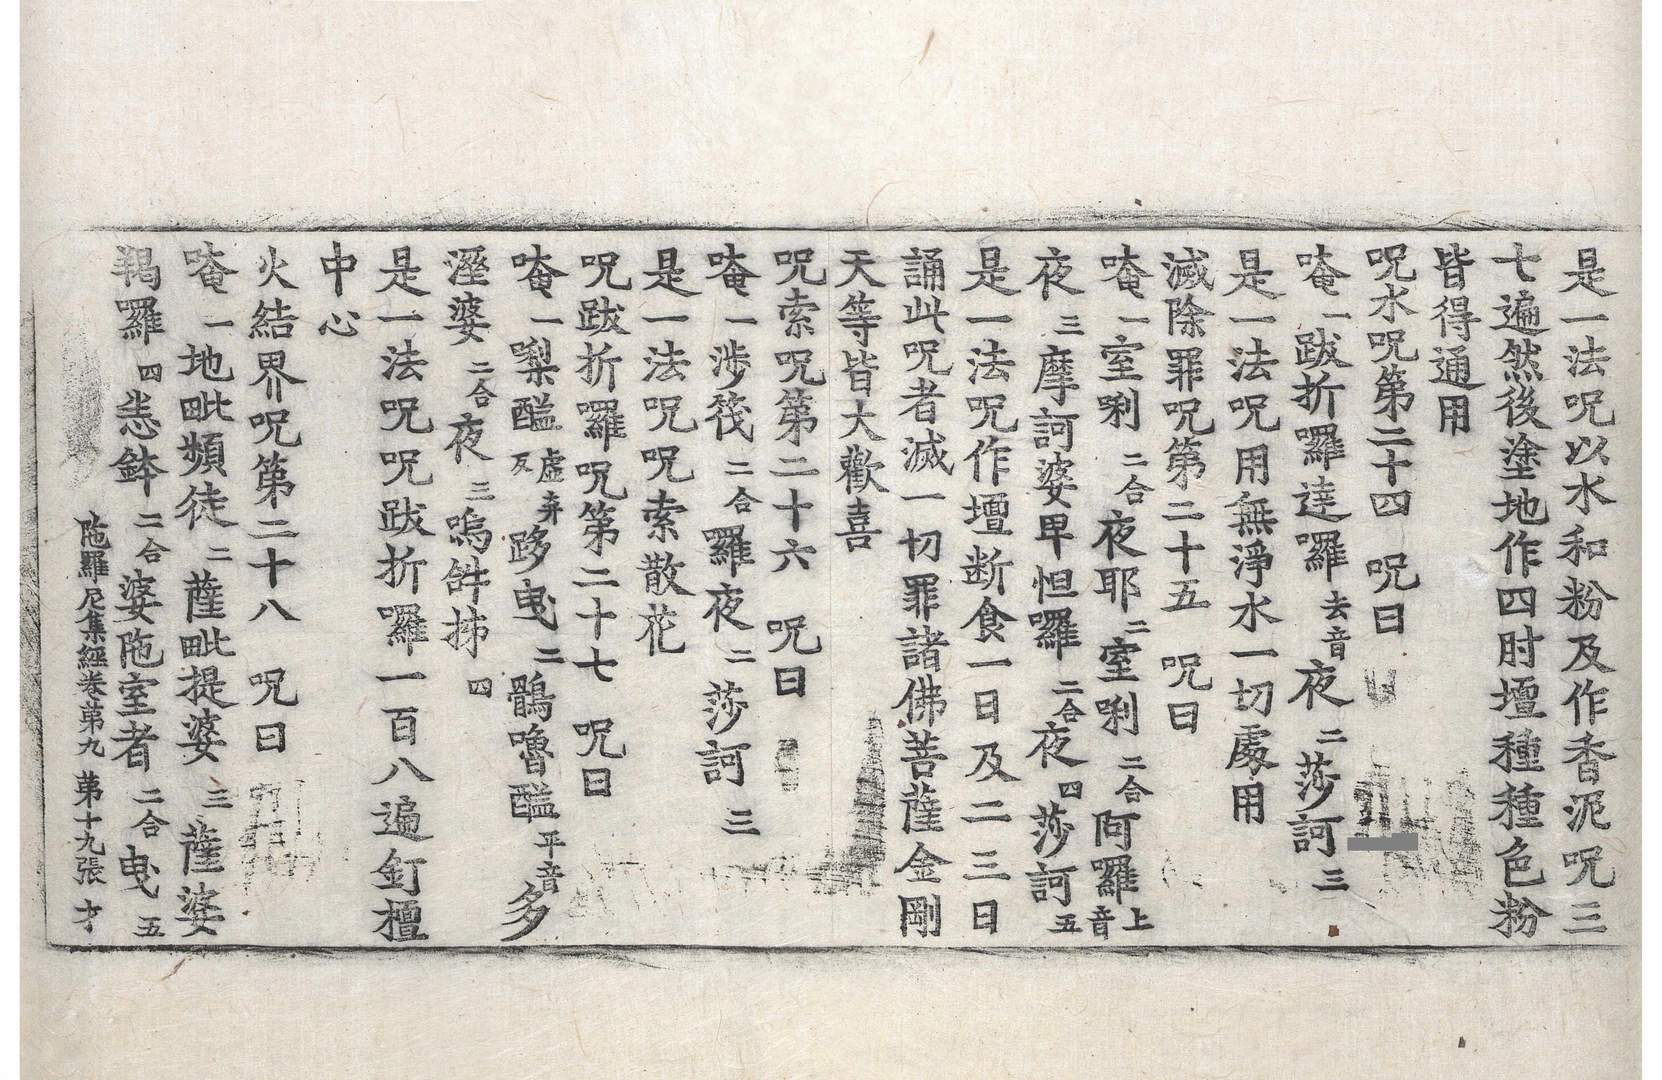 是一法呪以水和粉及作香泥呪三
七遍然後塗地作四肘壇種種色粉
皆得通用
呪水呪第二十四 呪曰
唵一跋折囉達囉去音夜二莎訶三
是一法呪用無淨水一切處用
滅除罪呪第二十五 呪曰
唵一室唎二合夜耶二室唎二合阿囉上音
夜三摩訶婆曱怛囉二合夜四莎訶五
是一法呪作壇断食一日及二三日
誦此呪者滅一切罪諸佛菩薩金剛
天等皆大歡喜
呪索呪第二十六 呪曰
唵一渉筏二合羅夜二莎訶三
是一法呪呪索散花
呪跋折囉呪第二十七 呪曰
唵一㮚醯虛弃反跢曳二鶻嚕醯平音多
溼婆二合夜三嗚𤙖抪四
是一法呪呪跋折囉一百八遍釘檀
中心
火結界呪第二十八 呪曰
唵一地毗頻徒二薩毗提婆三薩婆
羯羅四恙鉢二合婆陁室者二合曳五
陁羅尼集經卷第九 第十九張 才